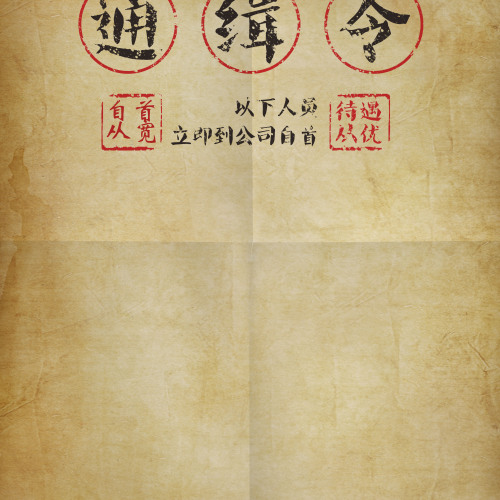 通缉令
自首
从宽
以下人员
立即到公司自首
待遇
从优